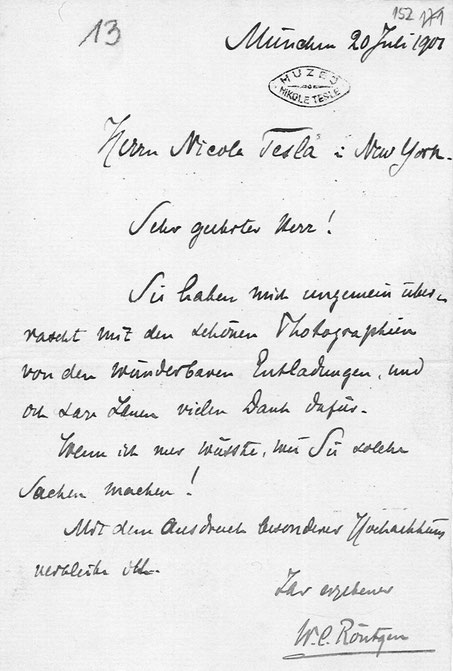 13
152
München 20 Juli 1901
MUZEJ
NIKOLE TESLE
Herrn Nicola Tesla i New York.
Sehr geehrter Herr!
Sie haben mich ungemein über-
rascht mit den schönen Photographien
von den wunderbaren Entladungen, und
ich sage Ihnen vielen Dank dafür.
Wenn ich nur wüsste, wie Sie solche
Sachen machen!
Mit dem Ausdruck besonderer Hochachtung
verbleibe ich
Ihr ergebener
W. C. Röntgen